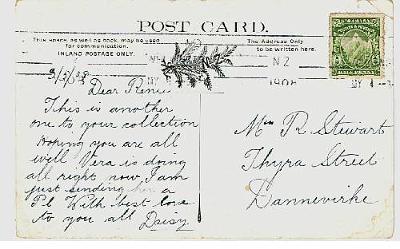 POST CARD.
This space as well as back, may be used
for communication.
INLAND POSTAGE ONLY.
The Address Only
to be written here.
N Z
1908
Dear Renie
This is another
one to your collection
Hoping you are all
well Vera is doing
all right now, I am
just sending her a
P.C. With best love
to you all Daisy
R Stewart
Thyra Street
Dannevirke